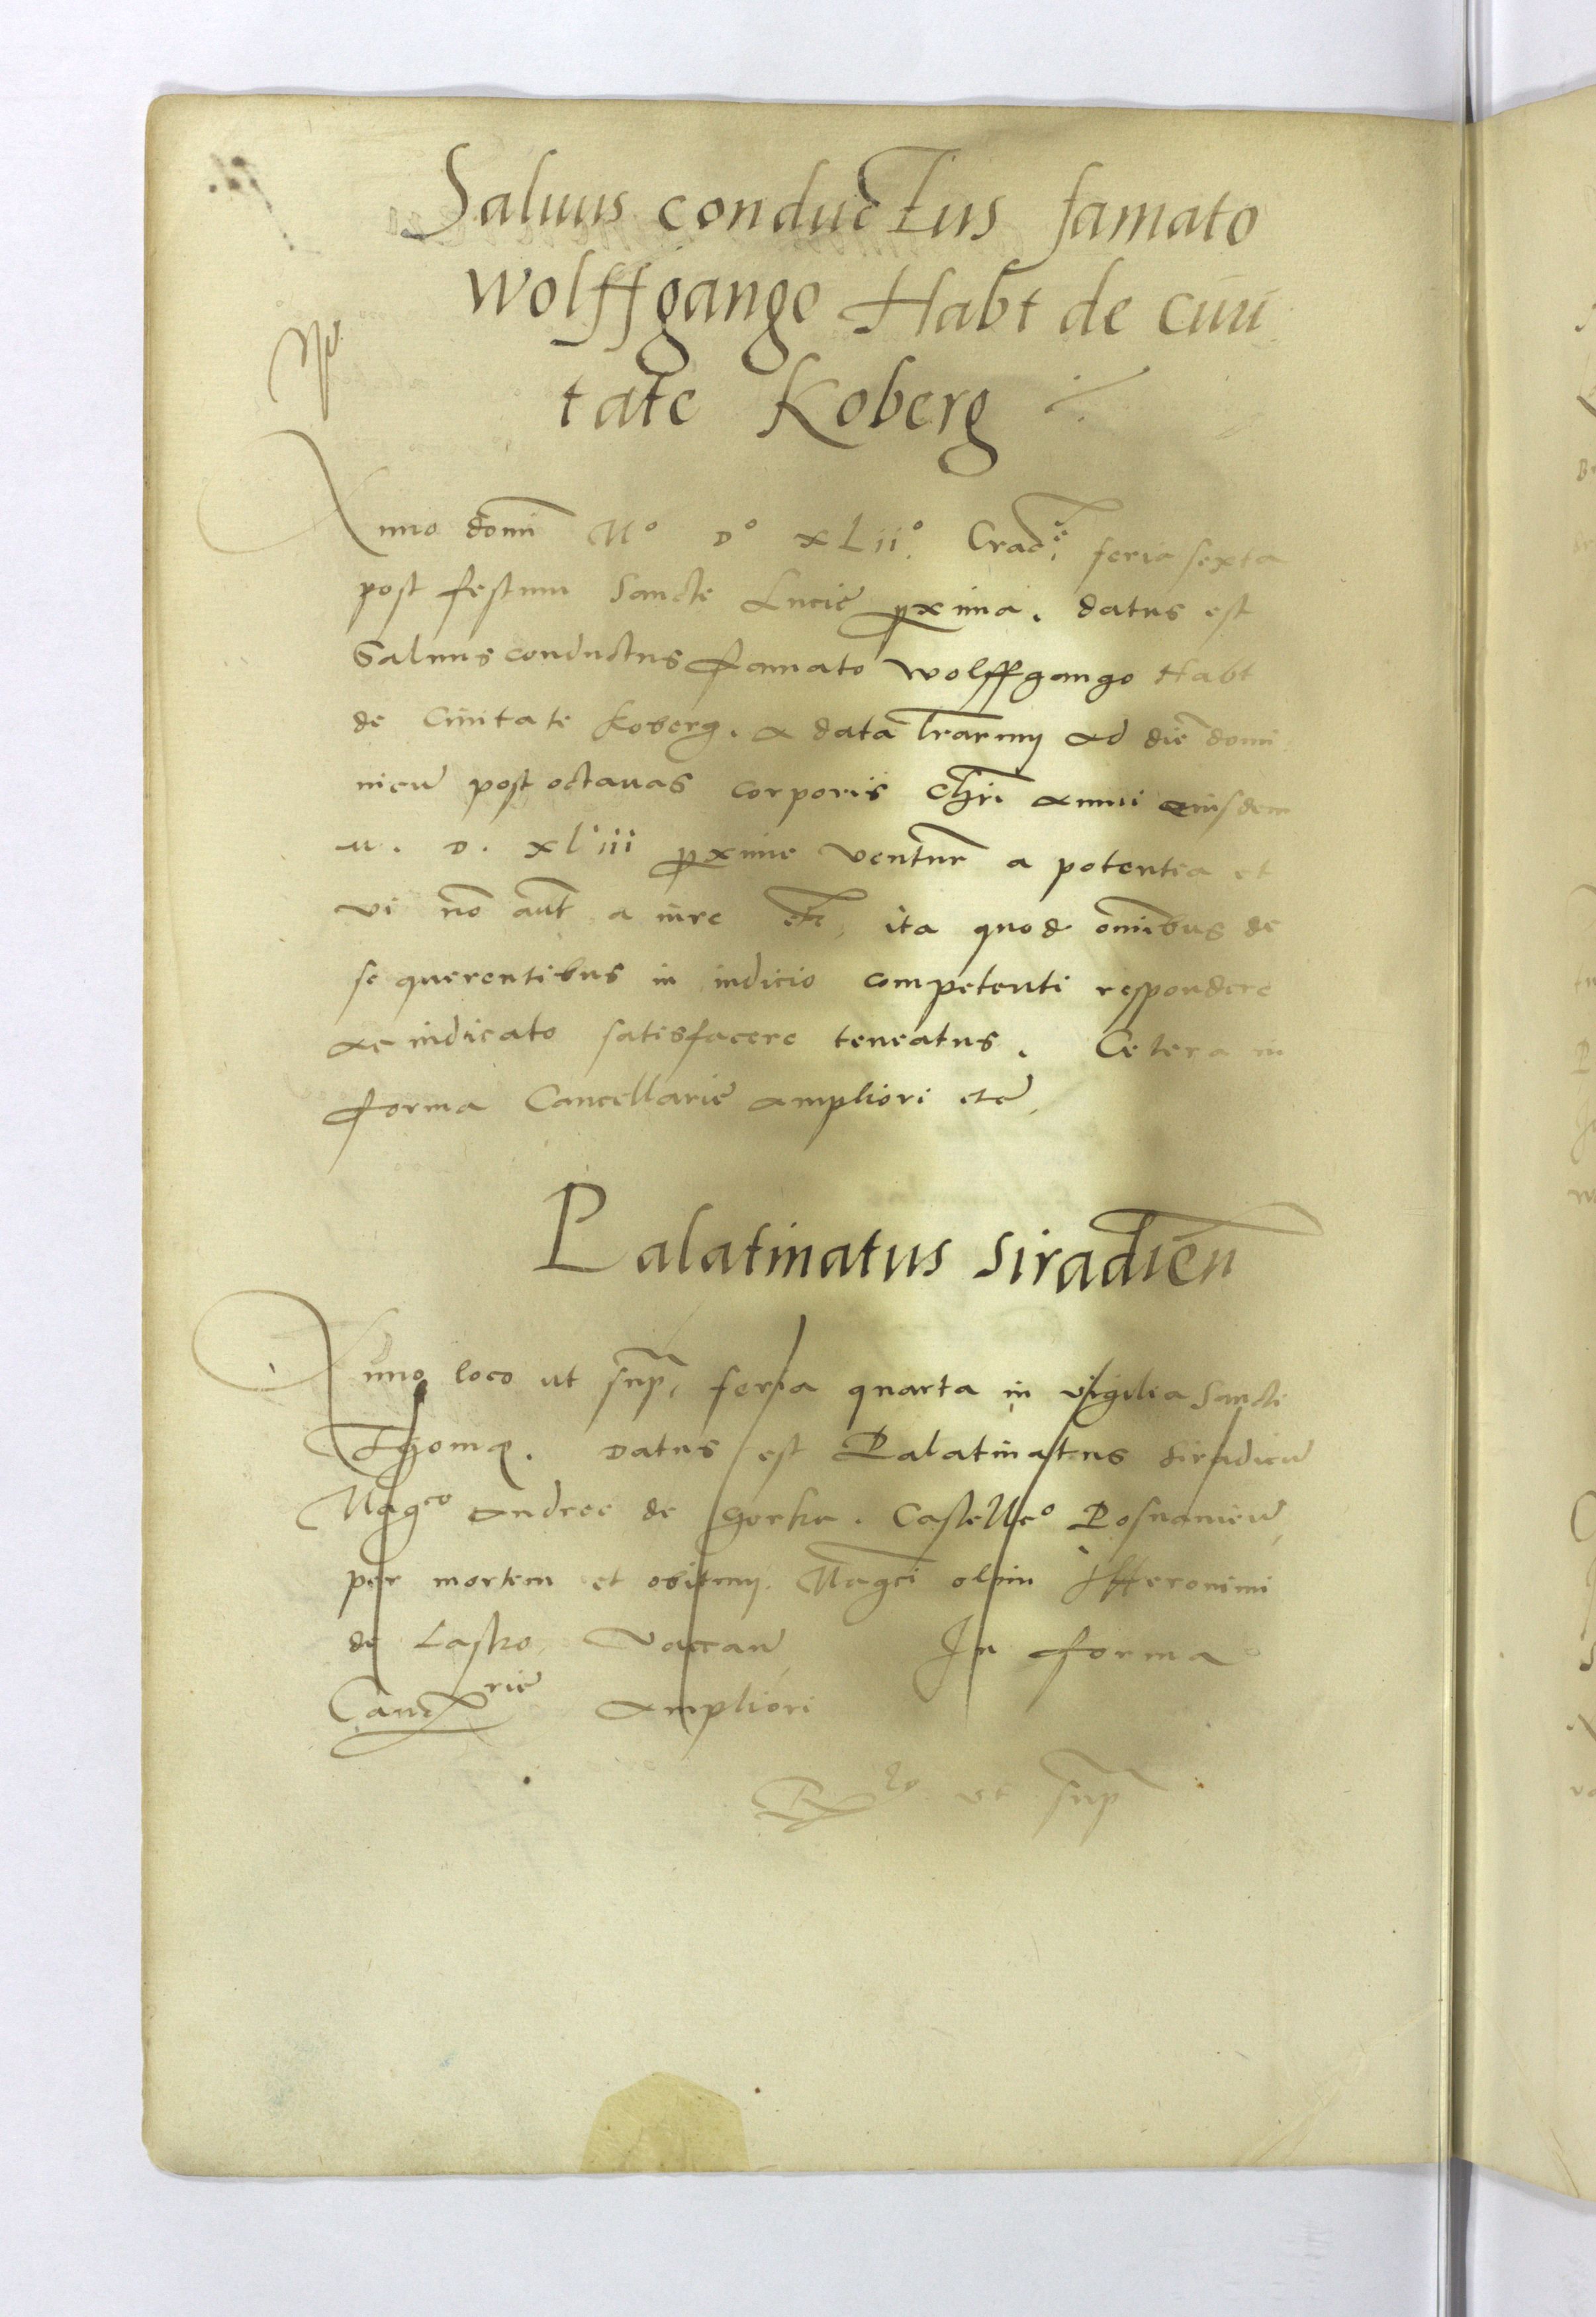 Saluus conductus famato
Wolffgango Habt de ciui
tate Koberg
Anno domi Mº Dº XLiiº. Craco. feria sexta
post festum Sancte Lucie pxima. datus est
Saluus conductus famato Wolffgango Habt
de Ciuitate Koberg. a data lrarum ad die domi
nicu post octauas corporis chri anni eiusdem
M. D. xliii pxime ventur a potentia et
vi no aut a iure etc, ita quod omibus de
se querentibus in iudicio competenti respondere
ac iudicato satisfacere teneatur. Cetera in
forma Cancellarie ampliori etc,
Palatinatus siradien
Anno loco ut sup, feria quarta in vigilia Sancti
Thome. Datus est Palatinatus Siradien
Magco Andree de Gorka. Castellco Posnanien,
per mortem et obitum. Magci olim Hieronimi
de Lasko, vacan, In forma
Cancrie ampliori
ut sup